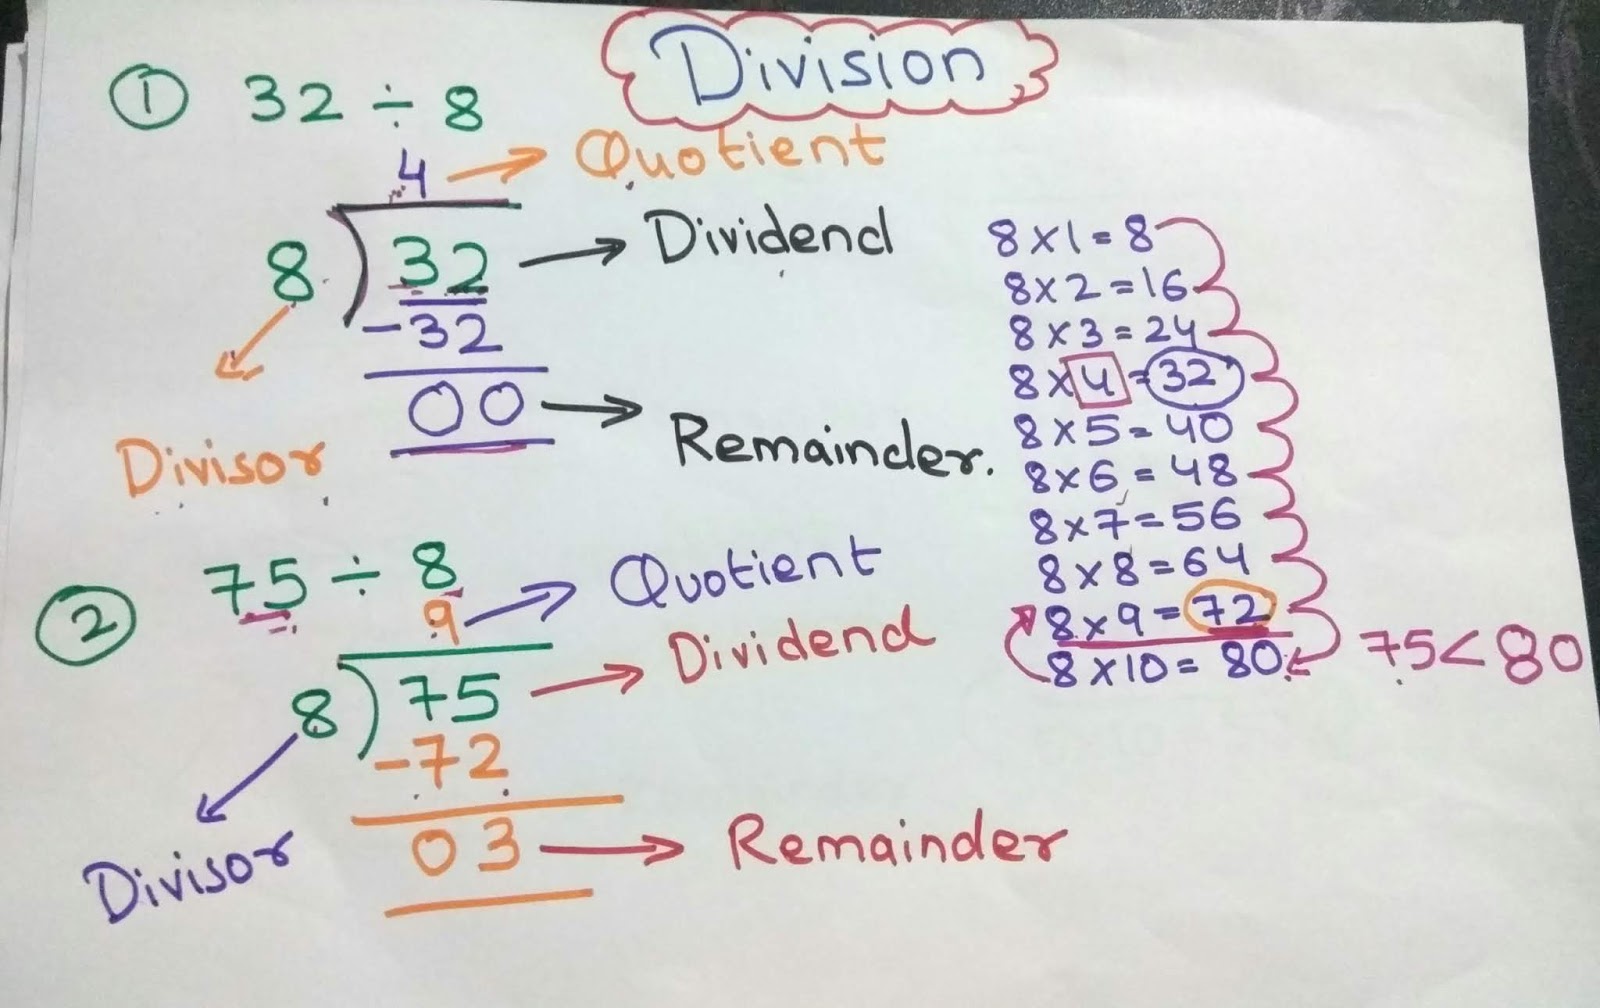 Division
① 32 ÷ 8
4 → Quotient
8) 32 → Dividend
-32
00 → Remainder.
Divisor
② 75 ÷ 8
9 → Quotient
8) 75 → Dividend
-72
03 → Remainder
Divisor
8 × 1 = 8
8 × 2 = 16
8 × 3 = 24
8 × 4 = 32
8 × 5 = 40
8 × 6 = 48
8 × 7 = 56
8 × 8 = 64
8 × 9 = 72
8 × 10 = 80
75 < 80